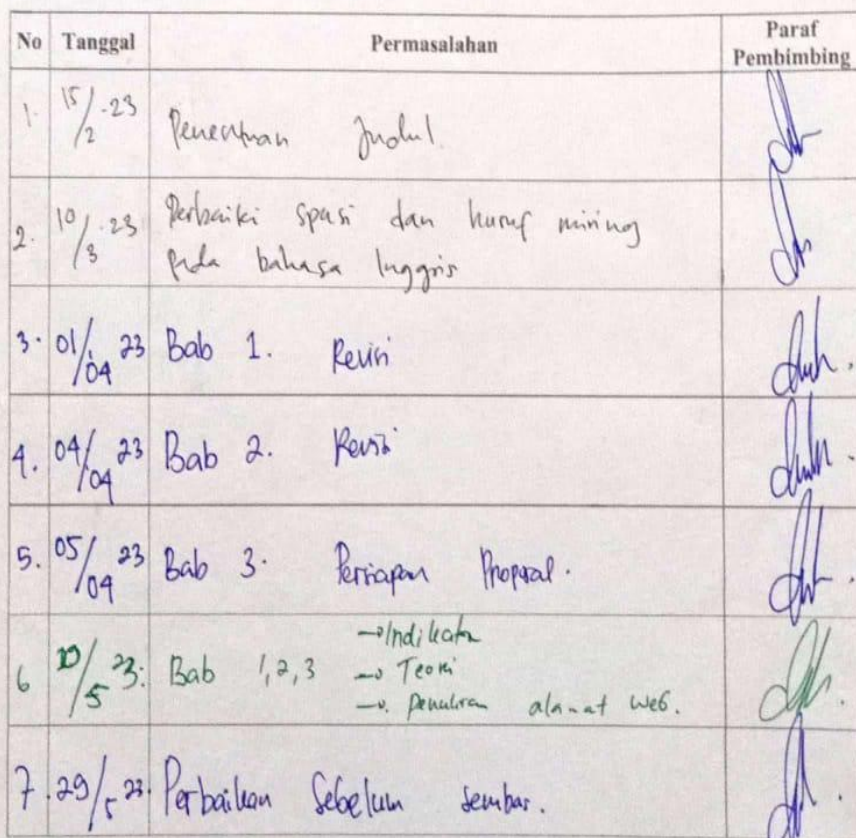 No Tanggal Permasalahan Paraf Pembimbing
1. 15/2-23 Penentuan Judul
2. 10/3-23 Perbaiki spasi dan huruf miring
pada bahasa Inggris
3. 01/04 23 Bab 1. Revisi
4. 04/04 23 Bab 2. Revisi
5. 05/04 23 Bab 3. Persiapan Proposal.
6 /5 23. Bab 1,2,3 → Indikator
→ Teori
→ Penulisan alamat web.
7. 29/5 23. Perbaikan Sebelum